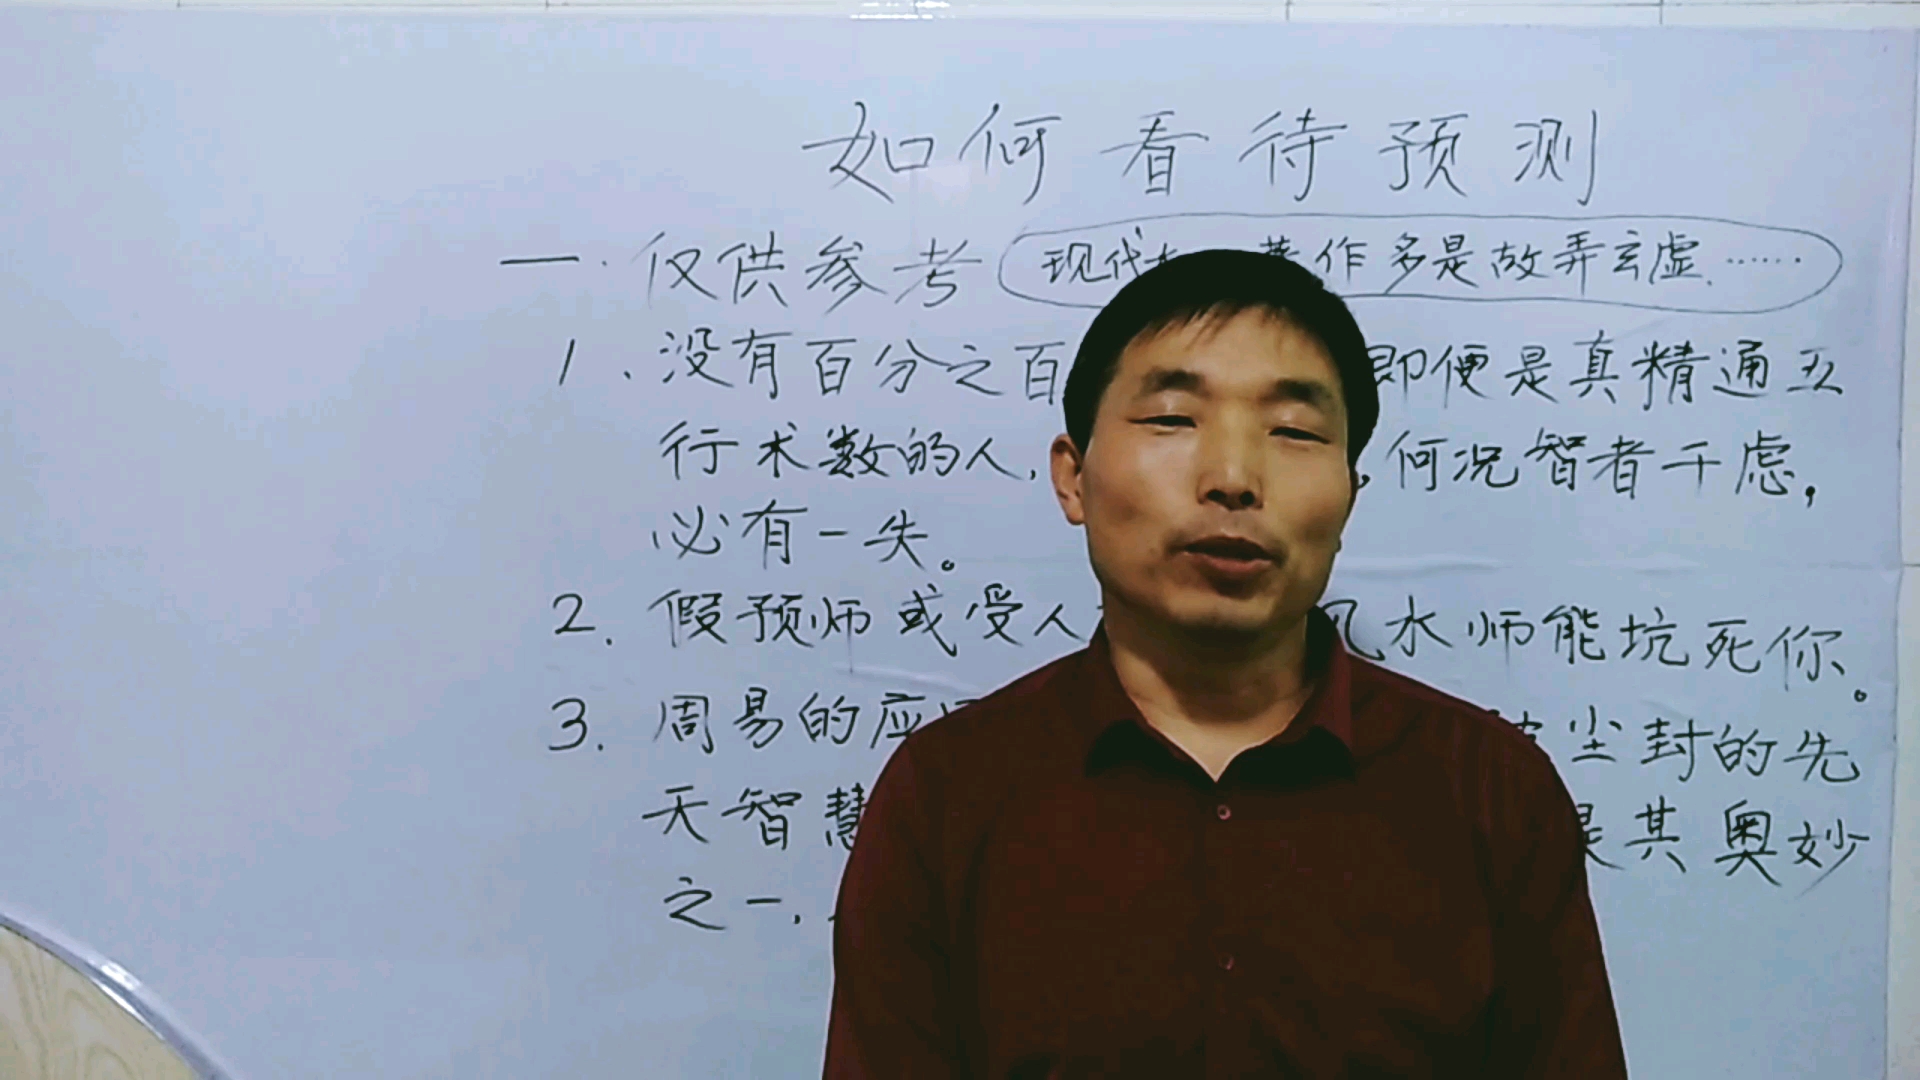 如何看待预测
一.仅供参考 现代 作多是故弄玄虚……
1.没有百分之百 即便是真精通五
行术数的人, ,何况智者千虑,
必有一失。
2.假预师或受人 风水师能坑死你。
3.周易的应 尘封的先
天智慧 是其奥妙
之一.